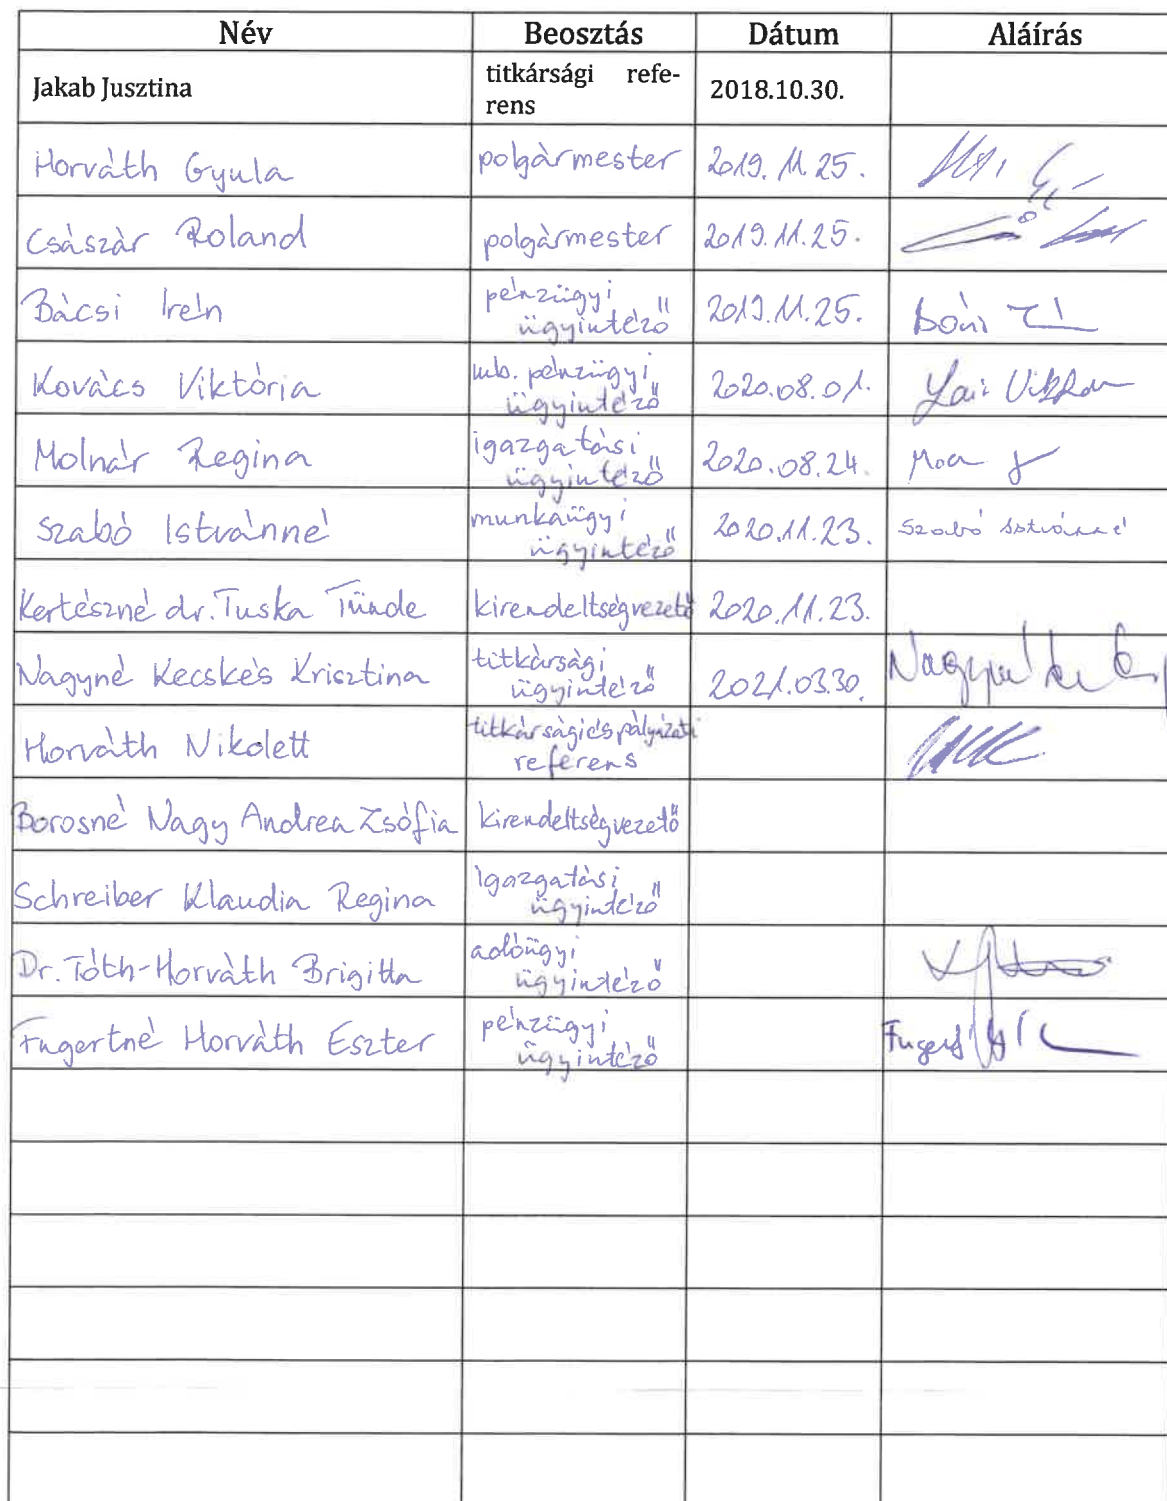 Név Beosztás Dátum Aláírás
Jakab Jusztina titkársági refe-
rens 2018.10.30.
Horváth Gyula polgármester 2019.11.25.
Császár Roland polgármester 2019.11.25.
Bácsi Irén pénzügyi
ügyintéző 2019.11.25.
Kovács Viktória mb. pénzügyi
ügyintéző 2020.08.01.
Molnár Regina igazgatási
ügyintéző 2020.08.24.
Szabó Istvánné munkaügyi
ügyintéző 2020.11.23. Szabó Istvánné
Kertészné dr. Tuska Tünde kirendeltségvezető 2020.11.23.
Nagyné Kecskés Krisztina titkársági
ügyintéző 2021.03.30.
Horváth Nikolett titkársági és pályázati
referens
Borosné Nagy Andrea Zsófia kirendeltségvezető
Schreiber Klaudia Regina igazgatási
ügyintéző
Dr. Tóth-Horváth Brigitta adóügyi
ügyintéző
Fugertné Horváth Eszter pénzügyi
ügyintéző